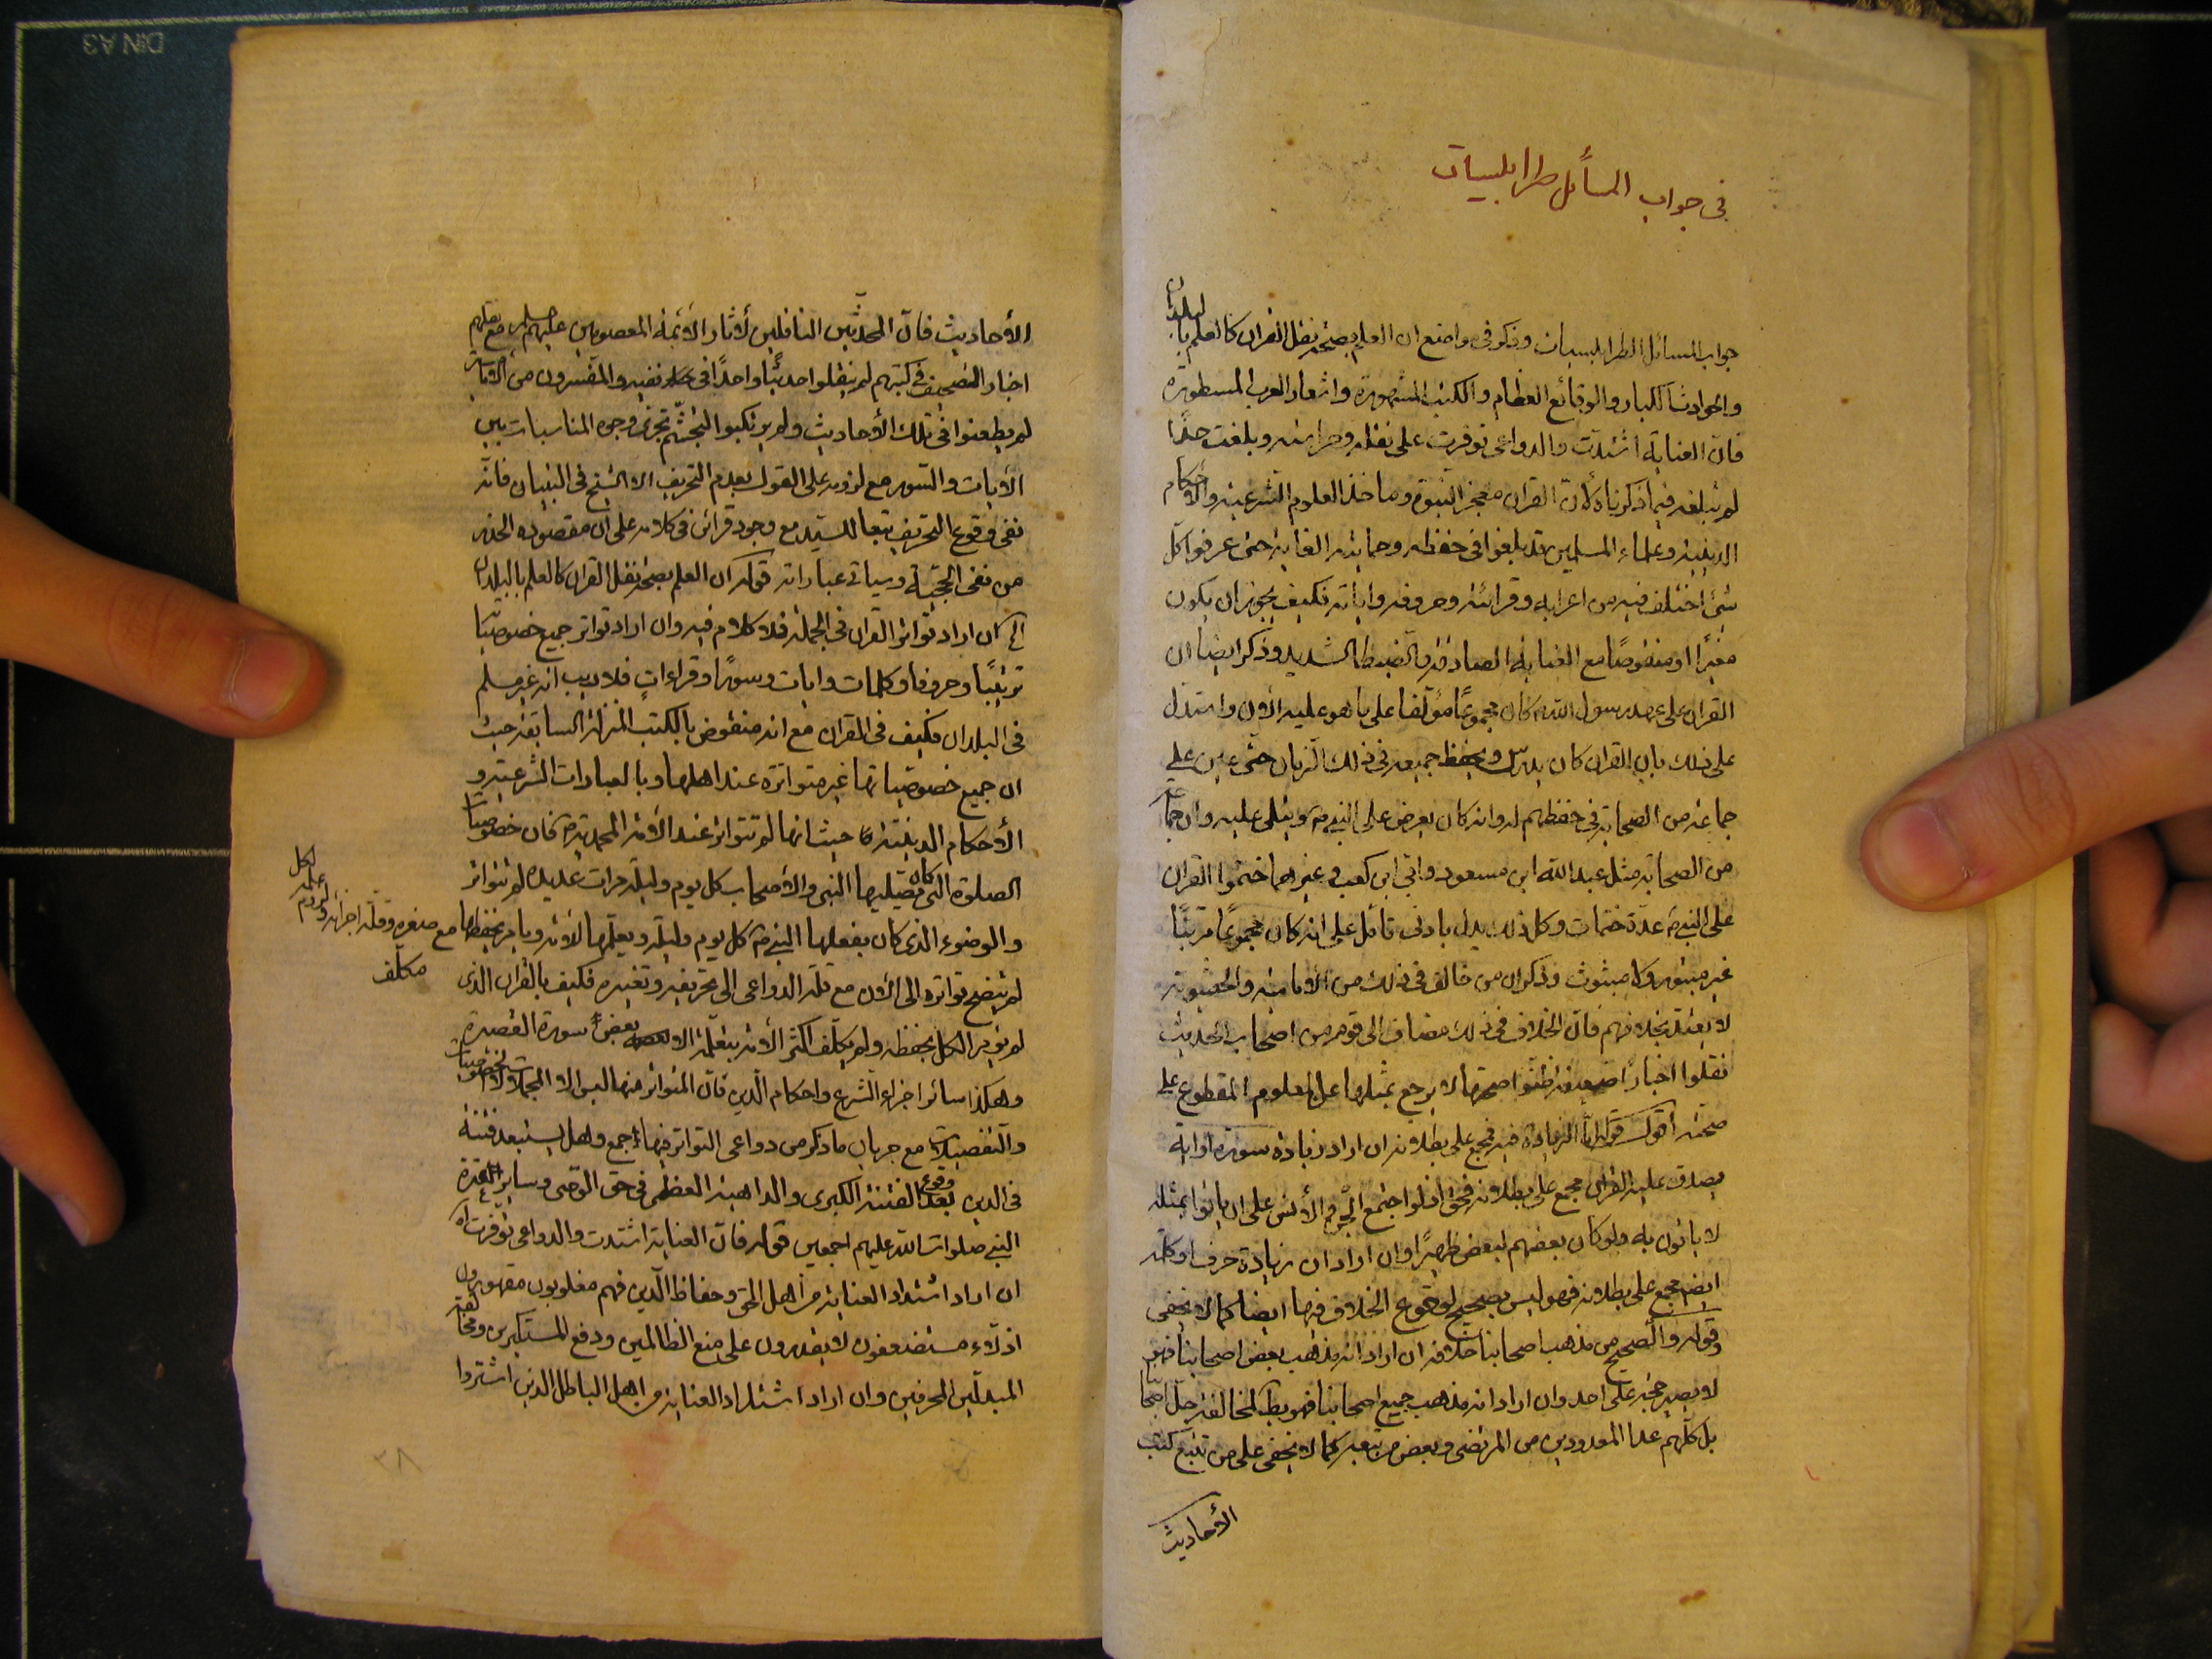 في جواب المسائل طرابلسيات
جواب المسائل الطرابلسيات وذكر في مواضع ان العلم بصحة نقل القران كالعلم بالبلدان
والحوادث الكبار والوقائع العظام والكتب المشهورة واشعار العرب المسطورة
فان العناية اشتدت والدواعي توفرت على نقله وحراسته وبلغت حدا
لم تبلغه فيما ذكرناه لأن القران معجز النبوة وماخذ العلوم الشرعية والأحكام
الدينية وعلماء المسلمين قد بلغوا في حفظه وحمايته الغاية حتى عرفوا كل
شئ اختلف فيه من اعرابه وقرائته وحروفه واياته فكيف يجوز ان يكون
مغيرا او منقوصا مع العناية الصادقة والضبط الشديد وذكر ايضا ان
القران على عهد رسول الله كان مجموعا مؤلفا على ما هو عليه الان واستدل
على ذلك بان القران كان يدرس ويحفظ جميعه في ذلك الزمان حتى عين على
جماعة من الصحابة في حفظهم له وانه كان يعرض على النبي ص ويتلى عليه وان جماعة
من الصحابة مثل عبد الله ابن مسعود وابي ابن كعب و غيرهما ختموا القران
على النبي ص عدة ختمات وكل ذلك يدل بادنى تامل على انه كان مجموعا مرتبا
غير مبتور ولا مبثوث وذكر ان من خالف في ذلك من الامامية والحشوية
لا يعتد بخلافهم فان الخلاف في ذلك مضاف الى قوم من اصحاب الحديث
نقلوا اخبارا ضعيفة ظنوا صحتها لا يرجع بمثلها عن المعلوم المقطوع على
صحته أقول قوله اما الزيادة فيه فمجمع على بطلانه ان اراد زيادة سورة او اية
يصدق عليه القران مجمع على بطلانه فحق اذ لو اجتمع الجن والأنس على ان ياتوا بمثله
لا ياتون به ولو كان بعضهم لبعض ظهيرا وان اراد ان زيادة حرف او كلمة
ايضا مجمع على بطلانه فهو ليس بصحيح لوقوع الخلاف فيها ايضا كما لا يخفى
وقوله والصحيح من مذهب اصحابنا خلافه ان اراد انه مذهب بعض اصحابنا فهو
لا يصير حجة على احد وان اراد انه مذهب جميع اصحابنا فهو بط لمخالفة جل اصحابنا
بل كلهم عدا المعدودين من المرتضى وبعض من تبعه كما لا يخفى على من تتبع كتب
الأحاديث
الأحاديث فان المحدثين الناقلين لأثار الأئمة المعصومين عليهم سلم مع نقلهم
اخبار التصحيف في كتبهم لم ينقلوا حديثا واحدا في نفيه والمفسرون من الامامية
لم يطعنوا في تلك الأحاديث ولم يرتكبوا التجشم وجوه المناسبات بين
الأيات والسور مع لزومه على القول بعدم التحريف الا الشيخ في التبيان فانه
نفى وقوع التحريف تبعا للسيد مع وجود قرائن في كلامه على ان مقصوده
من نفي الحجية وسياتي عباراته قوله ان العلم بصحة نقل القران كالعلم بالبلدان
الخ ان اراد تواتر القران في الجملة فلا كلام فيه وان اراد تواتر جميع خصوصياته
ترتيبا وحروفا وكلمات وايات وسورا وقراءات فلا ريب انه غير مسلم
في البلدان فكيف في القران مع انه منقوض بالكتب المنزلة السابقة حيث
ان جميع خصوصياتها غير متواترة عند اهلها وبالعبادات الشرعية و
الأحكام الدينية حيث انها لم تتواتر عند الأمة المحمدية ص فان خصوصيات
الصلوة التي كان يصليها النبي والأصحاب كل يوم وليلة مرات عديدة لم تتواتر
والوضوء الذي كان يفعلها النبي ص كل يوم وليلة ويعلمها الأمة ويامر بحفظها مع صغره وقلة اجزائه ولزوم
علمه
لكل
مكلف
لم يتضح تواتره الى الان مع قلة الدواعي الى تحريفه وتغييره فكيف بالقران الذي
لم يؤمر الكل بحفظه ولم يكلف اكثر الأمة بتعلمه الا بعض سورة القصيرة
وهكذا سائر اجزاء الشرع واحكام الدين فان المتواتر منها ليس الا المجملات لا الخصوصيات
والتفصيلات مع جريان ما ذكر من دواعي التواتر فيها اجمع وهل يستبعد فتنة
في الدين بعد وقوع الفتنة الكبرى والداهية العظمى في حق الوصي وساير العترة
النبي صلوات الله عليهم اجمعين قوله فان العناية اشتدت والدواعي توفرت اه
ان اراد اشتداد العناية من اهل الحق وحفاظ الدين فهم مغلوبون مقهورون
اذلاء مستضعفون لا يقدرون على منع الظالمين ودفع المستكبرين ومخالفة
المبدلين المحرفين وان اراد اشتداد العناية من اهل الباطل الذين اشتروا
٣٨